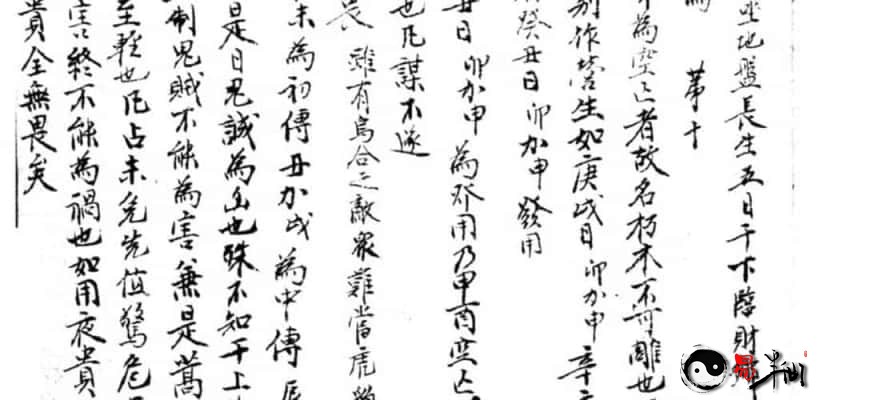 坐地盤長生五日干下臨財
為 第十
為空亡者故名朽木不可雕也
别作营生如庚戌日 卯加申 辛
癸丑日 卯加申 發用
丑日 卯加申 為發用乃甲酉空亡
也凡謀不遂
長 雖有烏合之敵眾難當虎
未為初傳丑加戌為中傳辰
是日鬼誠為凶也殊不知干上
制鬼賊不能為害兼是蒿
至輕也凡占未免先值驚危
言終不能為禍也如用夜貴
貴全無畏矣
半仙